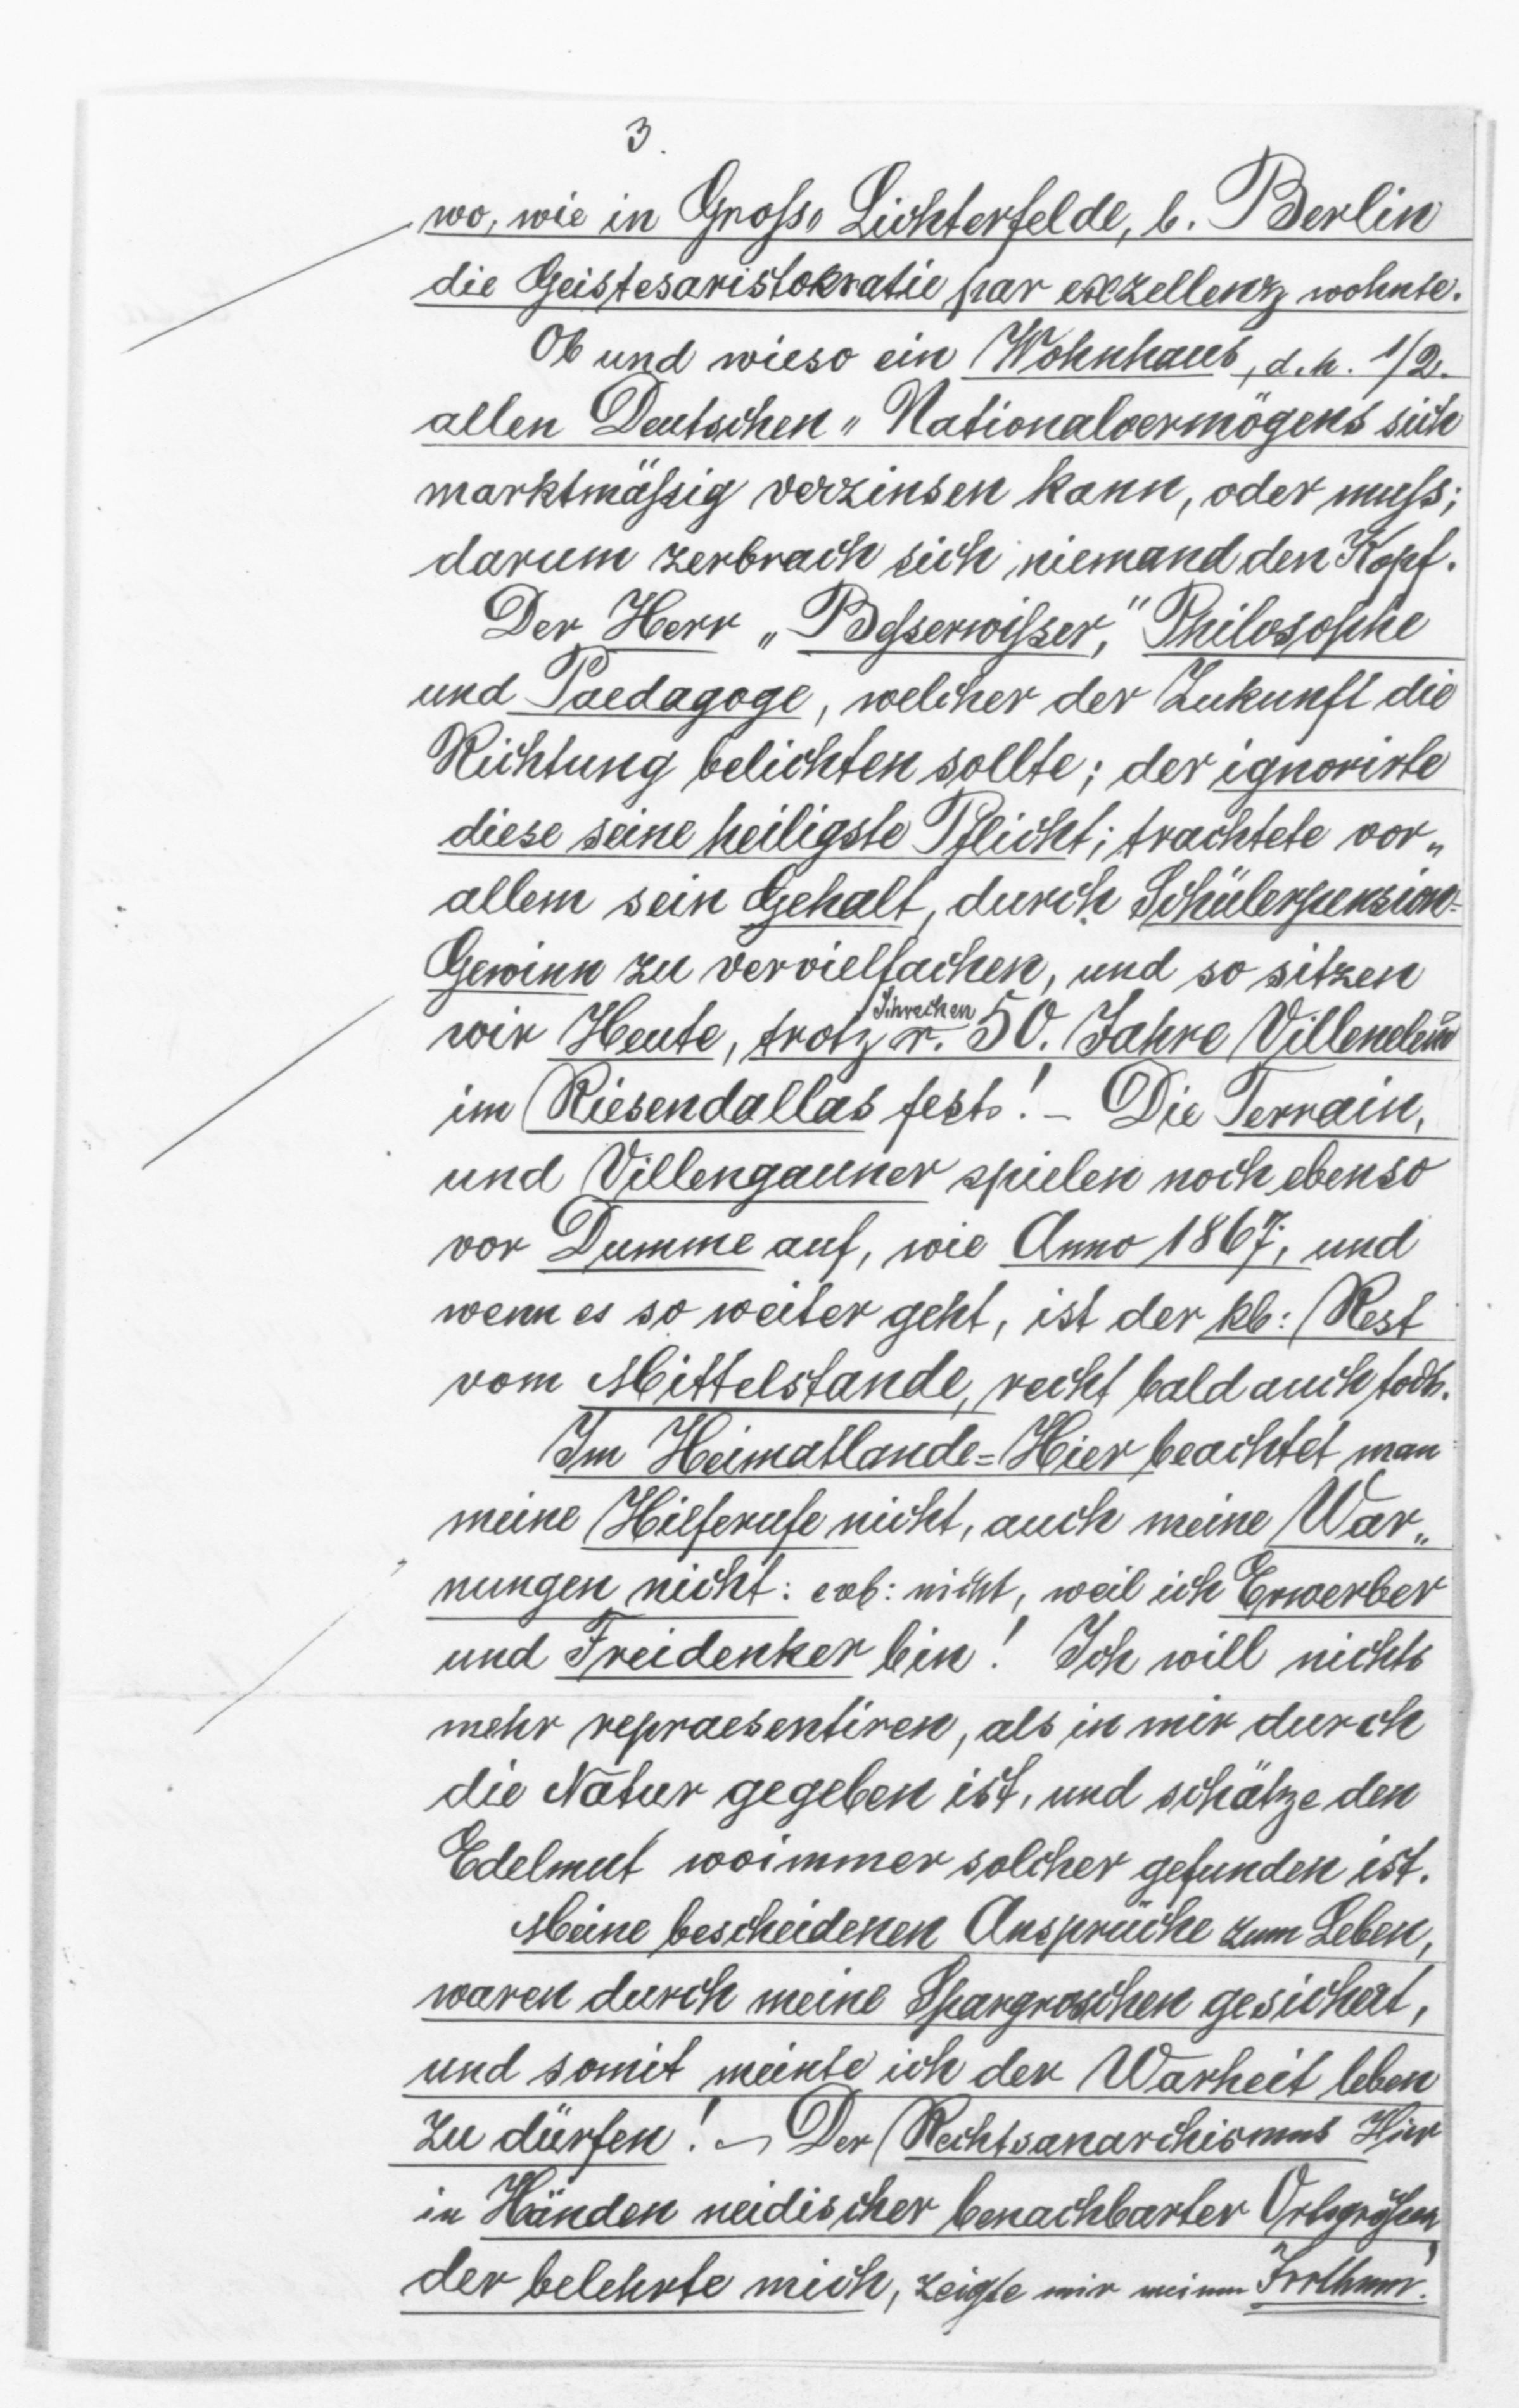 3.
wo, wie in Gross„ Lichterfelde, b. Berlin
die Geistesaristokratie par exzellenz wohnte.
Ob und wieso ein Wohnhaus, d. h. 1/2.
allen Deutschen „ Nationalvermögens sich
marktmässig verzinsen kann, oder muss;
darum zerbrach sich niemand den Kopf.
Der Herr „Besserwisser," Philosophe
und Paedagoge, welcher der Zukunft die
Richtung belichten sollte; der ignorirte
diese seine heiligste Pflicht; trachtete vor„
allem sein Gehalt, durch Schülerpension=
Gewinn zu vervielfachen, und so sitzen
Schrechen
wir Heute, trotz r. 50. Jahre
im Riesendallas fest! – Die Terrain,
und Villengauner spielen noch ebenso
vor Dumme auf, wie Anno 1867; und
wenn es so weiter geht, ist der kb: Rest
vom Mittelstande, recht bald auch todt.
Im Heimatlande=Hier beachtet man
meine Hilferufe nicht, auch meine War„
nungen nicht: nicht, weil ich Erwerber
und Freidenker bin! Ich will nichts
mehr repraesentiren, als in mir durch
die Natur gegeben ist, und schätze den
Edelmut woimmer solcher gefunden ist.
Meine bescheidenen Ansprüche zum Leben,
waren durch meine Spargroschen gesichert,
und somit meinte ich der Warheit leben
zu dürfen! – Der Rechtsanarchismus Hier
in Händen neidischer benachbarter Ortsgrößen,
der belehrte mich, zeigte mir meinen Irrthum!